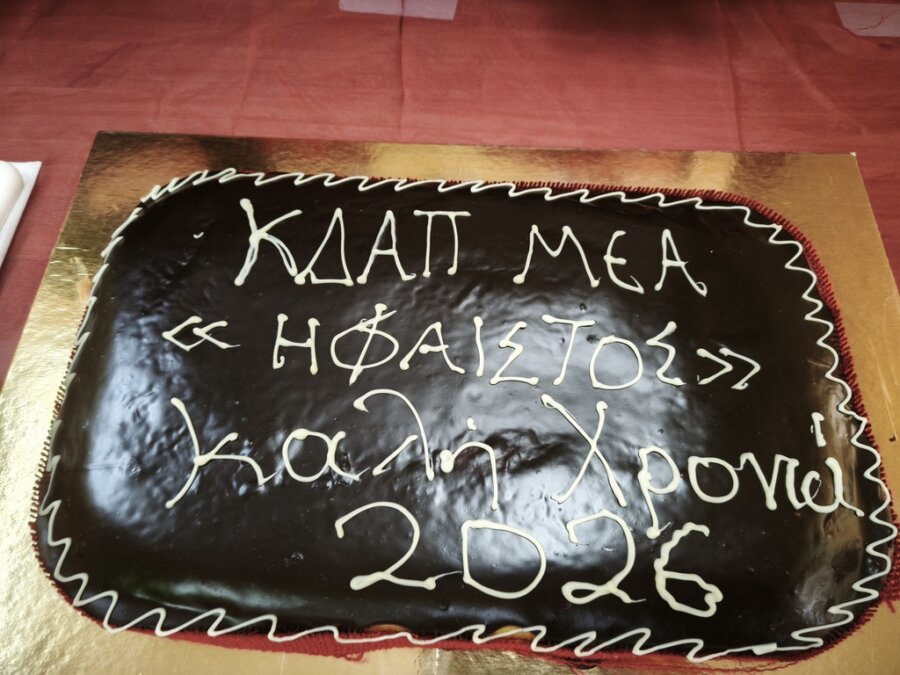 ΚΔΑΠ ΜΕΑ
« ΗΦΑΙΣΤΟΣ »
Καλή Χρονιά
2026